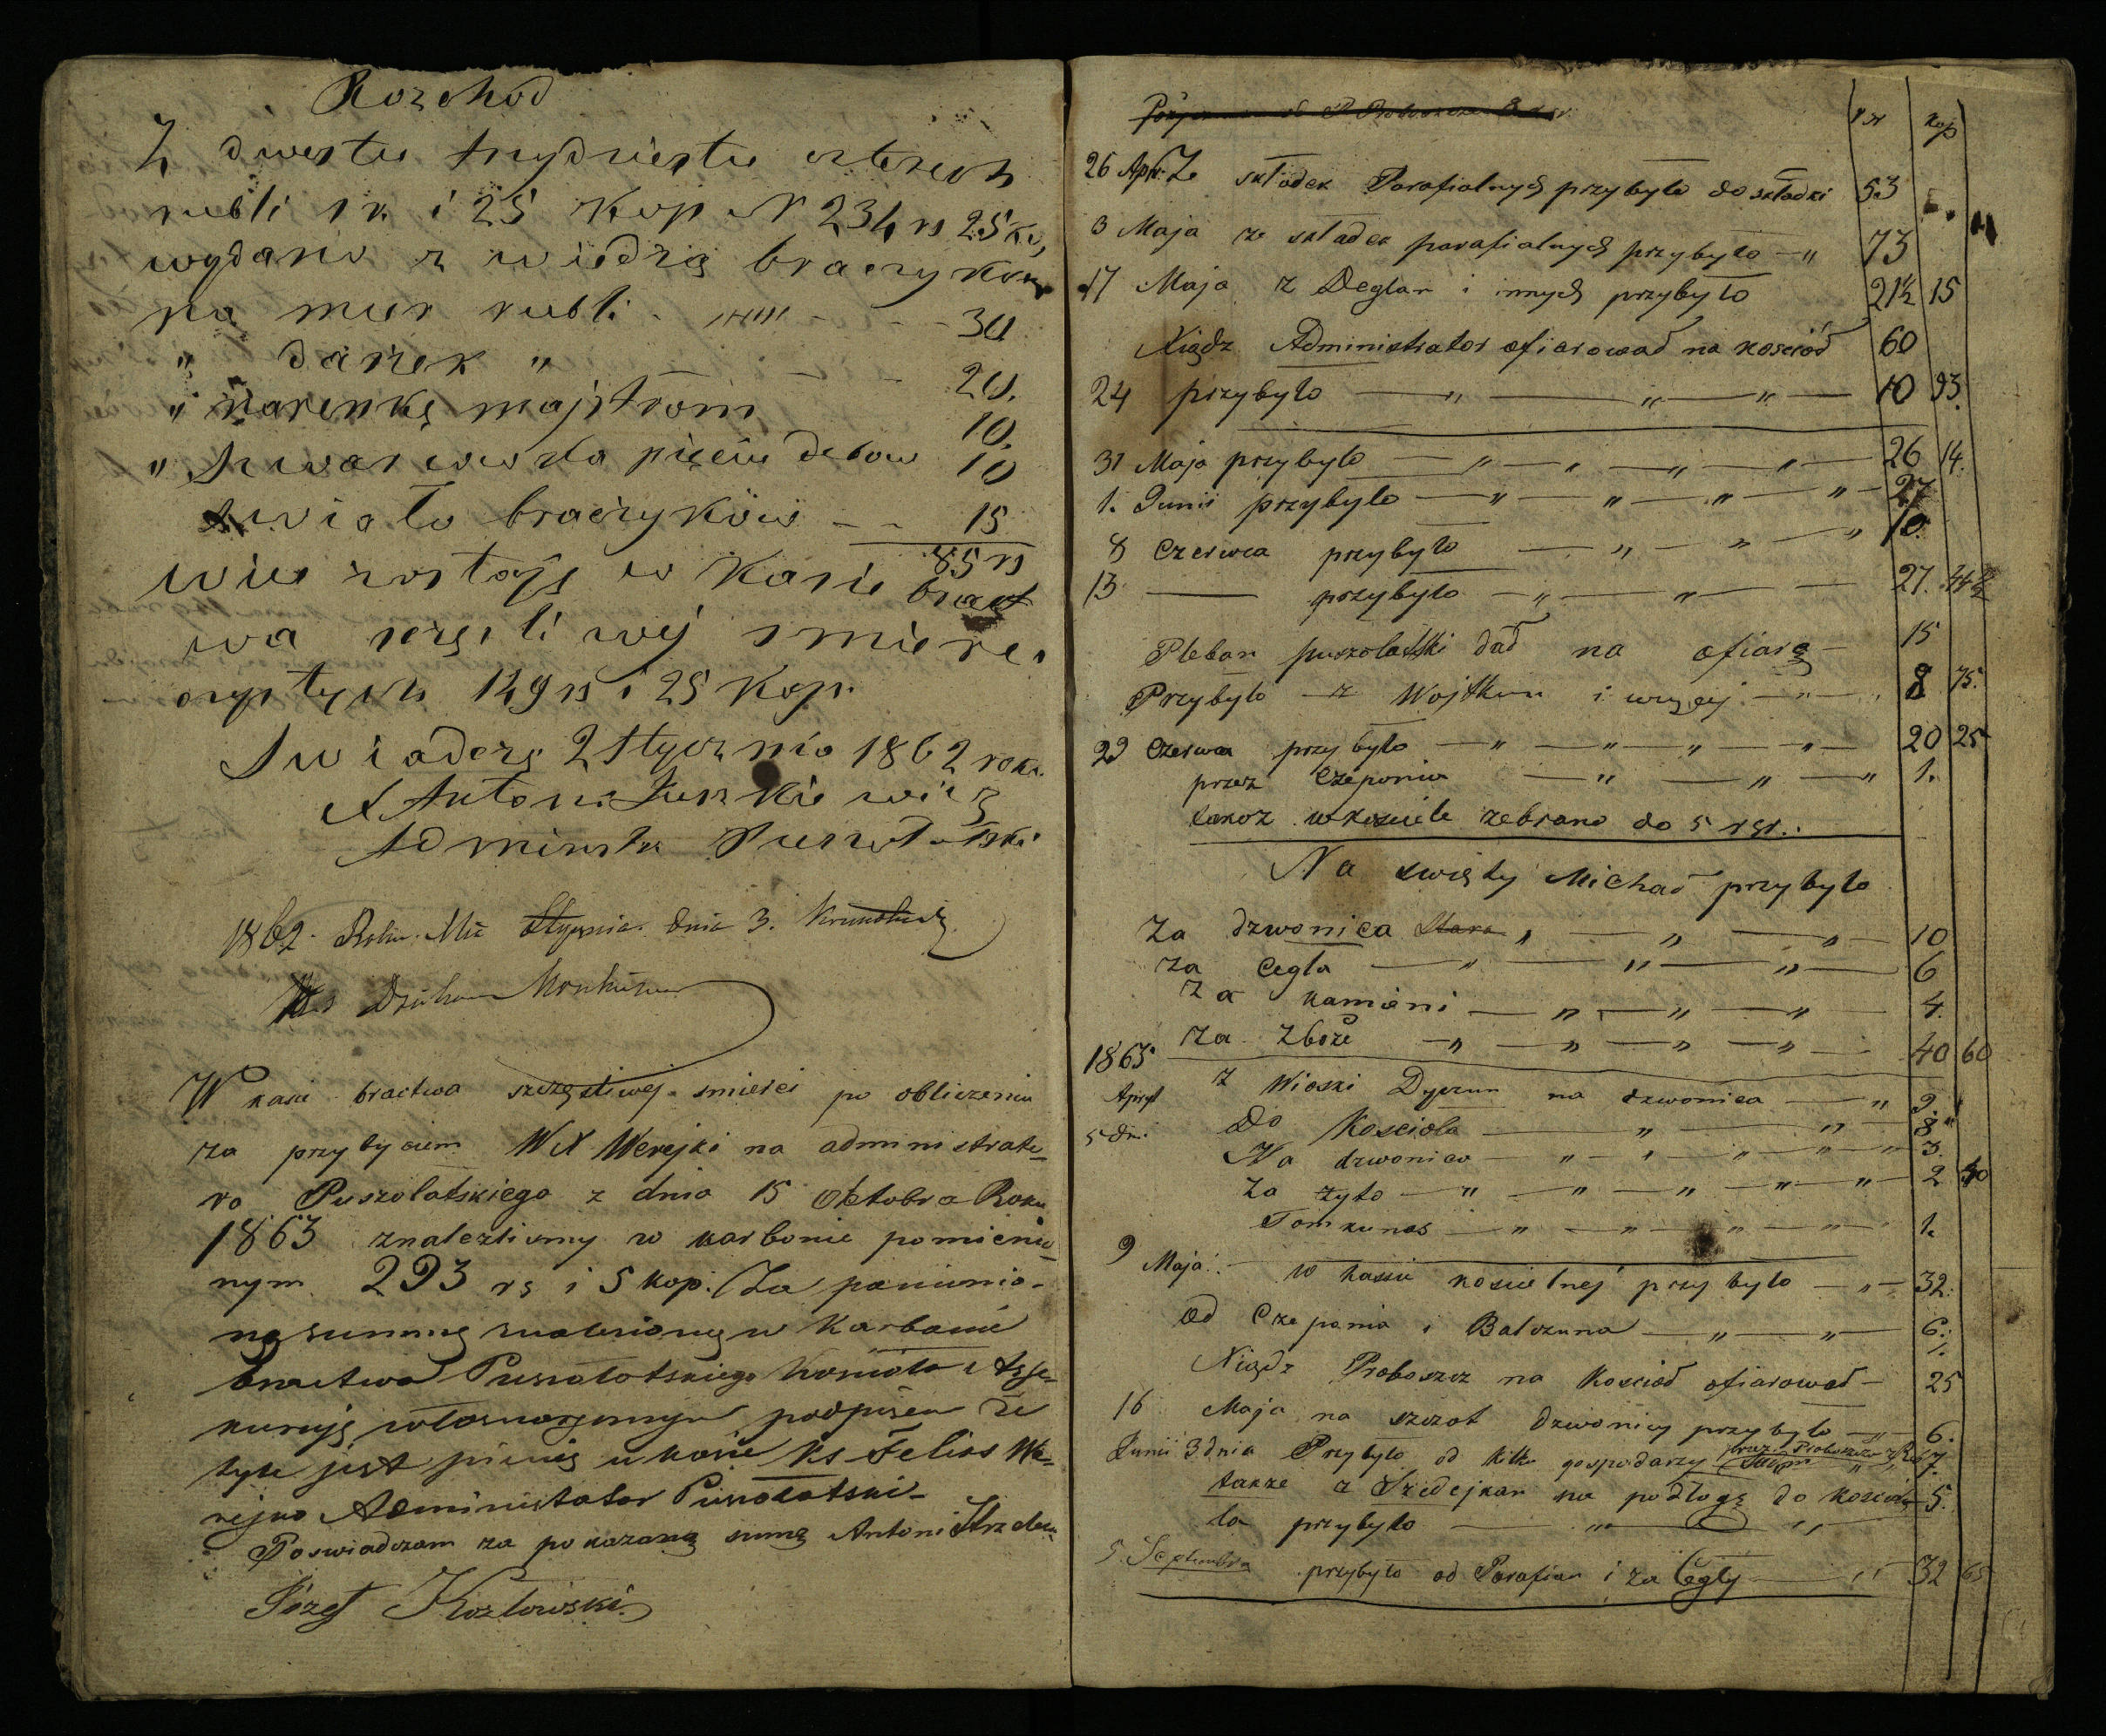 Rozchod
Z dwestu trzydziestu czterech
rubli sr. i 25 kop N 234 rs 25 ko,
wydano z wiedzą braczyków
na mur rubli - - - - 30
" daszek " - - 20.
" i narenkę majstrom 10.
" Szwarcowska pięciu debow 10
swiatło braczyków - - 15
85 rs
wiec zostaje w Kasie bract
wa szczęsliwej smierci
oczystych 149 rs i 25 kop.
Swiadczę 2 Stycznia 1862 roku.
X Antoni
Administr Puszołatski
1862. Roku. Mca Stycznia. dnia 3.
W kasie bractwa szczęsliwej smierci po obliczeniu
za przybyciem WX Werejki na administrato_
ra Puszolatskiego z dnia 15 Oktobra Roku
1863 znalezlismy w karbonie pomienio_
nym 293 rs i 5 kop. Za pomienio-
ną summę znalezioną w Karbonie
bractwa Puszołotskiego Kosciola Asse_
kuruję własnoręcznym podpisem że
tyle jest pienię w kasie Ks Felix We_
rejko Administator Puszołatski_
Poswiadczam za pokazaną sumę Antoni
Józef Kozłowski.
rsr kop
26 Apr. Ze składek Parafialnych przybyło do składki 53
3 Maja ze składek parafialnych przybyło - " 73
17 Maja z Deglan i innych przybyło 21½ 15
Xiądz Administrator ofiarował na kosciół 60
24 przybyło — " — " — " — 10 93.
31 Maja przybyło — " — " — " — " — 26 14.
1. Junii przybyło — " — " — " — " — 27
8 Czerwca przybyło — " — " — " 10.
13 — przybyło — " — " — 27. 44½
Pleban puszolatski dał na ofiarę — 15
Przybyło z Wojtkun i więcej — " — 8 75.
29 Czerwca przybyło — " — " — " — " — 20 25
przez Czeponia — " — " — " 1.
takoz w kosciele zebrano do 5 rsr..
Na swięty Michał przybyło
Za dzwonica Stara " — " — " — 10
za cegla — " — " — " — 6
Za kamieni — " — " — " — 4.
za zboże — " — " — " — " — 40 60
1863
Apryl z Wioski Dyczun na dzwonica — " 9.
5 dni Do Kosciola — " — " — 8 "
Na dzwonico — " — " — " — " — " 3.
Za zyto — " — " — " — " — " 2 40
Tomkunas — " — " — " — " — 1.
9 Maja. w kassie koscielnej przybyło — " — 32.
od Czepania i Balczuna — " — " — 6.
1.
Xiądz Proboszcz na Kosciół ofiarował — 25
16 Maja na szczot dzwonicy przybyło — " — 6.
Junii 3 dnia Przybyło od kilku gospodarzy 7.
takze z Szedejkan na podłogę do koscio 5.
la przybyło — " — "
5. Septembra przybyło od Parafian i za Cegły — " 32 65